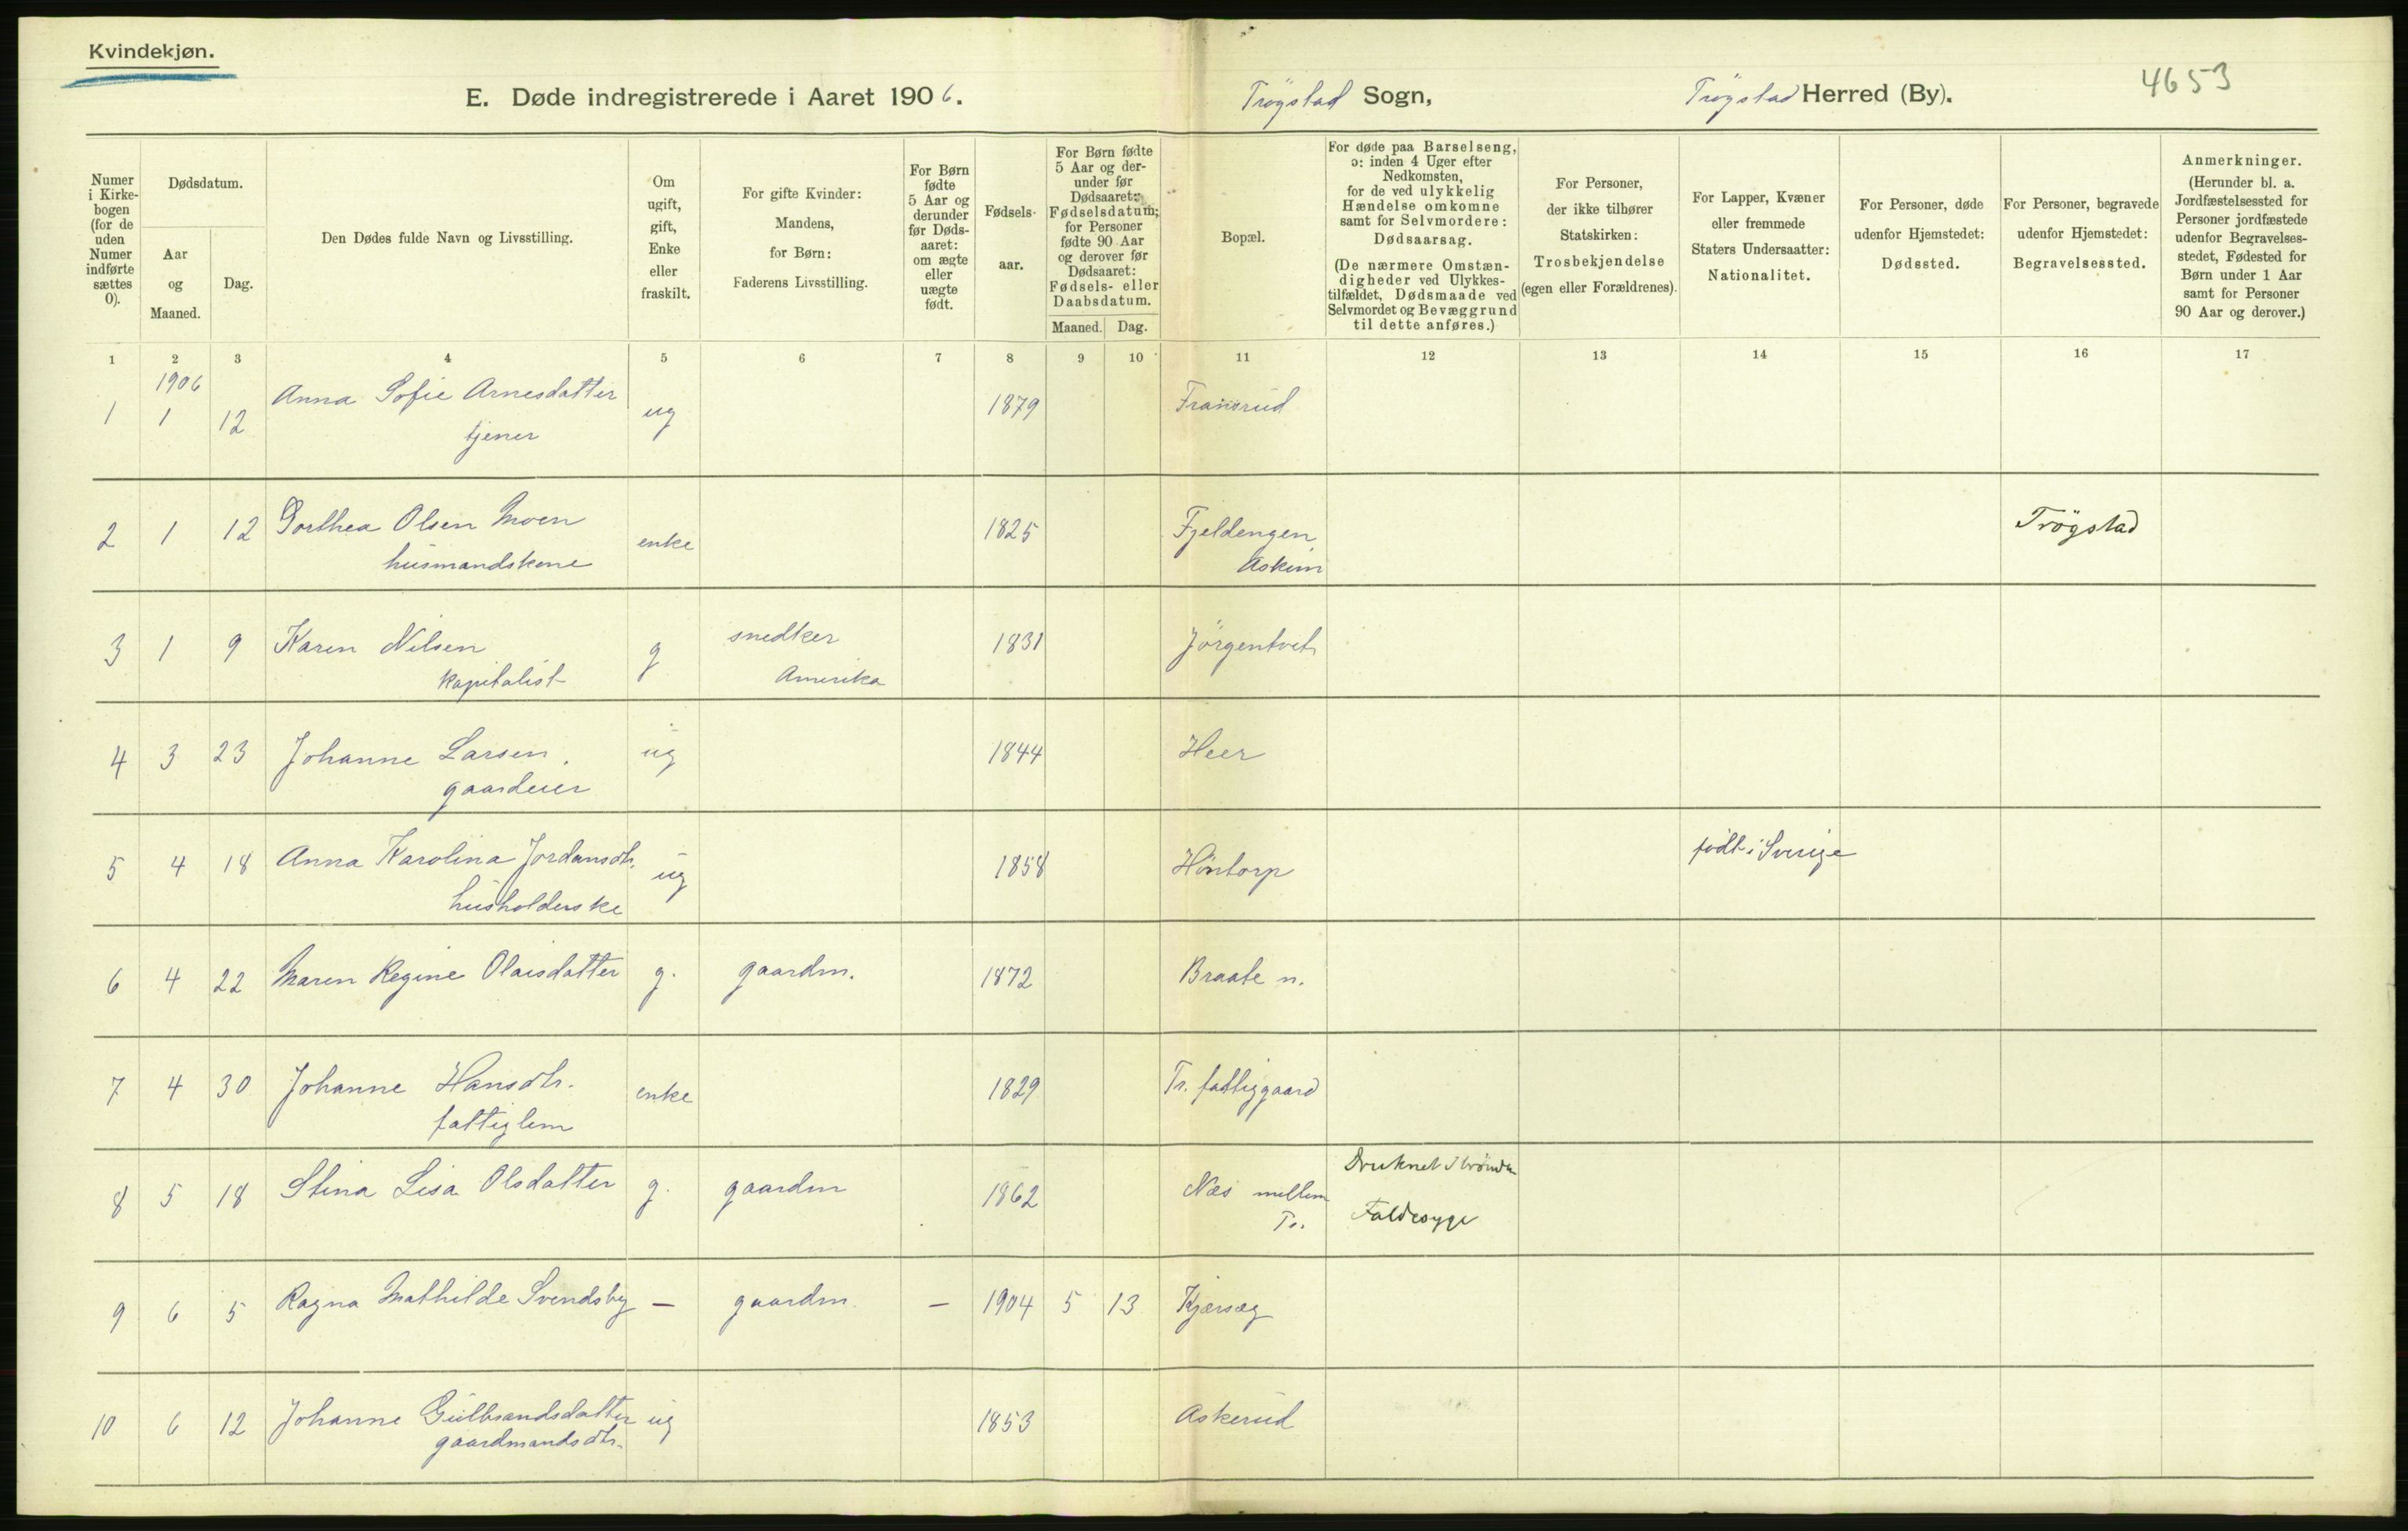 Kvindekjøn.
E. Døde indregistrerede i Aaret 1906. Trøgstad Sogn, Trøgstad Herred (By). 4653
Numer i Kirkebogen (for de uden Numer indførte sættes 0).
Dødsdatum.
Aar og Maaned.
Dag.
Den Dødes fulde Navn og Livsstilling.
Om ugift, gift, Enke eller fraskilt.
For gifte Kvinder: Mandens, for Børn: Faderens Livsstilling.
For Børn fødte 5 Aar og derunder før Dødsaaret: om ægte eller uægte født.
Fødselsaar.
For Børn fødte 5 Aar og derunder før Dødsaaret: Fødselsdatum; for Personer fødte 90 Aar og derover før Dødsaaret: Fødsels- eller Daabsdatum.
Maaned. Dag.
Bopæl.
For døde paa Barselseng, ɔ: inden 4 Uger efter Nedkomsten, for de ved ulykkelig Hændelse omkomne samt for Selvmordere: Dødsaarsag. (De nærmere Omstændigheder ved Ulykkestilfældet, Dødsmaade ved Selvmordet og Bevæggrund til dette anføres.)
For Personer, der ikke tilhører Statskirken: Trosbekjendelse (egen eller Forældrenes).
For Lapper, Kvæner eller fremmede Staters Undersaatter: Nationalitet.
For Personer, døde udenfor Hjemstedet: Dødssted.
For Personer, begravede udenfor Hjemstedet: Begravelsessted.
Anmerkninger. (Herunder bl. a. Jordfæstelsessted for Personer jordfæstede udenfor Begravelsesstedet, Fødested for Børn under 1 Aar samt for Personer 90 Aar og derover.)
1 2 3 4 5 6 7 8 9 10 11 12 13 14 15 16 17
1906
1 1 12 Anna Sofie Arnesdatter ug 1879
tjener
2 1 12 Dorthea Olsen Moen enke 1825 Fjeldengen Trøgstad
husmandskone Askim
3 1 9 Karen Nilsen g snedker 1831 Jörgentvet
kapitalist Amerika
4 3 23 Johanne Larsen, ug 1844 Heer
gaardeier
5 4 18 Anna Karolina Jordansdtr. ug 1858 Höntorp født i Sverige
husholderske
6 4 22 Maren Regine Olaisdatter g. gaardm. 1872 Braate n.
7 4 30 Johanne Hansdtr. enke 1829 Tr. fattiggaard
fattiglem
8 5 18 Stina Lisa Olsdatter g. gaardm 1862 Næs mellem Druknet
Tr. Faldesyge
9 6 5 Ragna Mathilde Svendsby — gaardm. — 1904 5 13
10 6 12 Johanne Gulbrandsdatter ug 1853 Askerud
gaardmandsdtr.